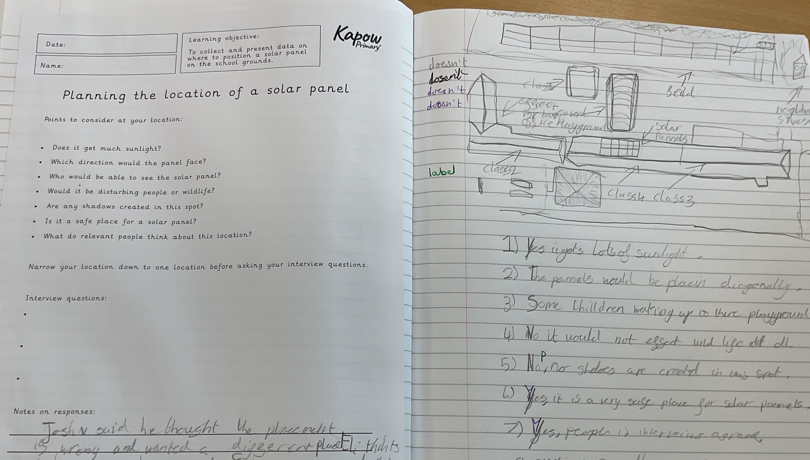 Date:
Name:
Learning objective:
To collect and present data on
where to position a solar panel
on the school grounds.
Kapow
Primary
Planning the location of a solar panel
Points to consider at your location:
• Does it get much sunlight?
• Which direction would the panel face?
• Who would be able to see the solar panel?
• Would it be disturbing people or wildlife?
• Are any shadows created in this spot?
• Is it a safe place for a solar panel?
• What do relevant people think about this location?
Narrow your location down to one location before asking your interview questions.
Interview questions:
Notes on responses:
Josh said he thought the placement
is wrong and wanted a different place
doesn't
dosent
doesn't
doesn't
label
class
solar
pannels
class2
class4 class3
1) Yes it gets lots of sunlight.
2) The pannels would be placed diagonally.
3) Some Children making up in there playground
4) No it would not effect wild life at all.
5) No, nor shdoes are created in this spot.
6) Yes, it is a very safe place for solar pannels.
7) Yes, people in interveiws agreed.